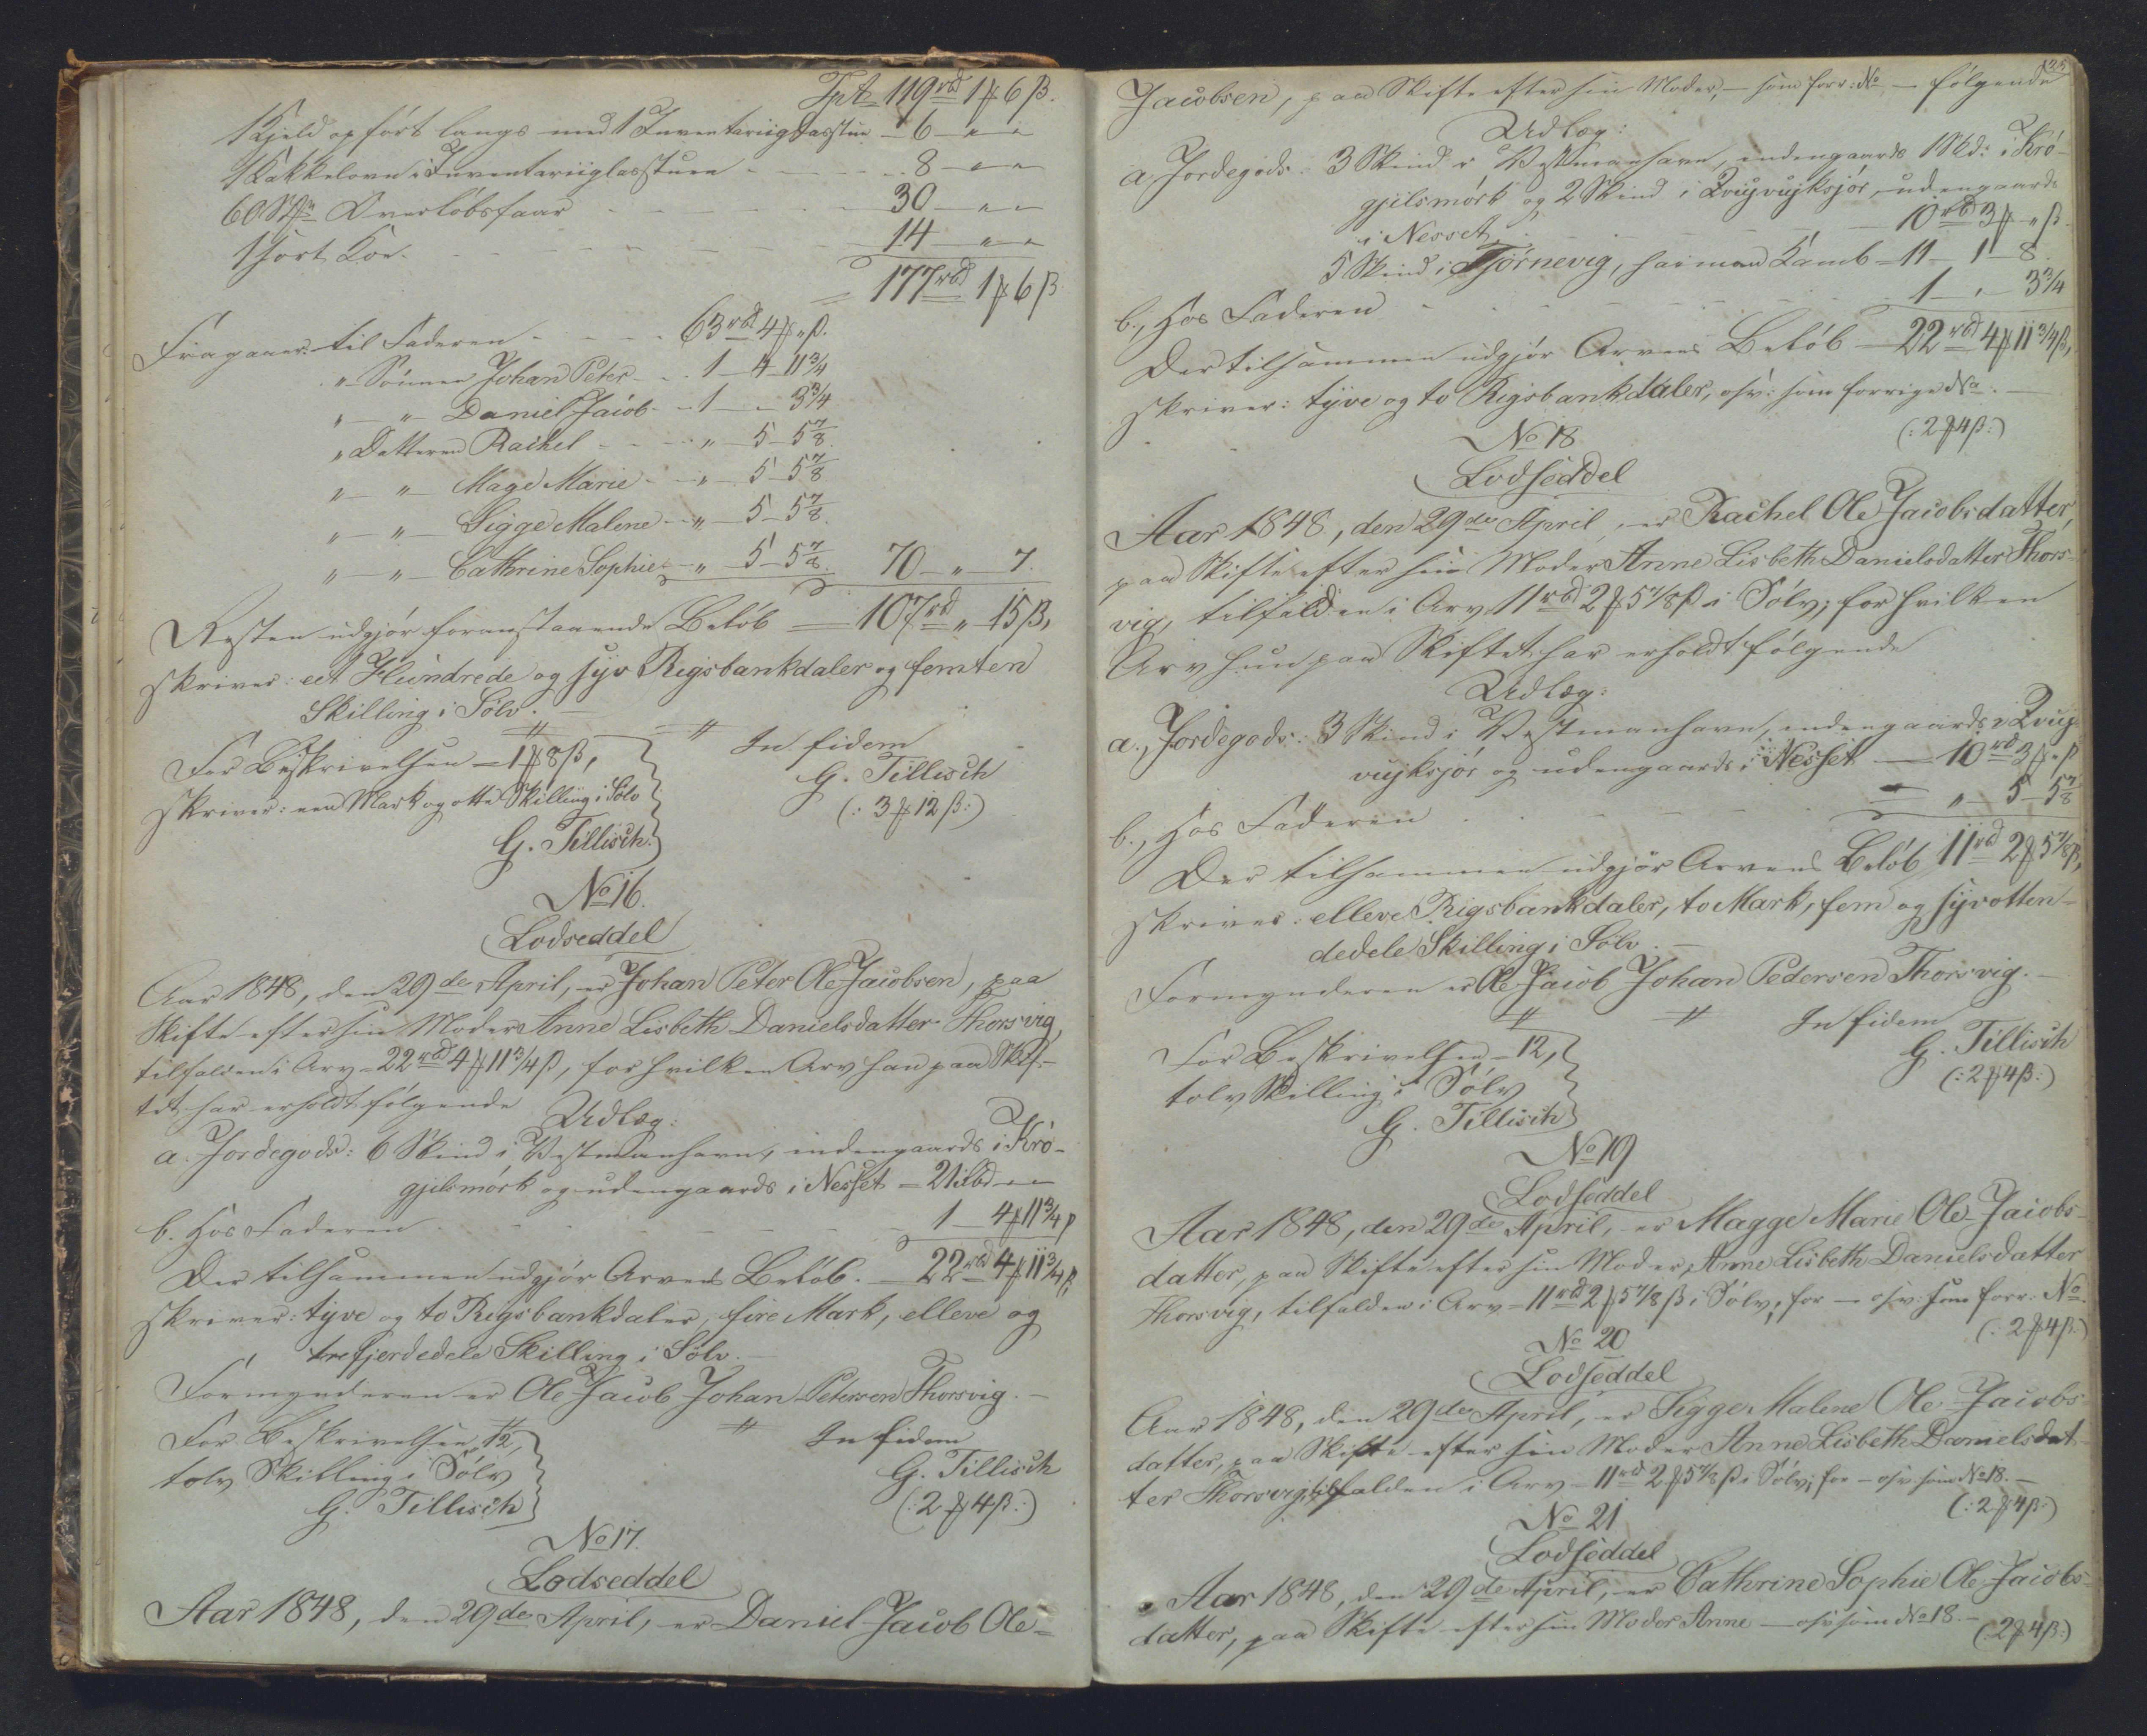 Tpt. 119 rbd 1 ₻ 6 β.
1 Kjeld opført langs med 1 Inventariiglasstue - 6 - " - "
1 Kakkelovn i Inventariiglasstuen - 8 - " - "
60 St. Overløbsfaar - 30 - " - "
1 sort Koe - 14 - " - "
= 177 rbd 1 ₻ 6 β
Fragaaer: til Faderen - 63 rbd 4 ₻ " β.
" Sønnen Johan Peter - 1 - 4 - 11 3/4
" - " - Daniel Jacob - 1 - " - 3 3/4
" Datteren Rachel - " - 5 - 5 7/8
" - " - Mage Marie - " - 5 - 5 7/8
" - " - Sigge Malene - " - 5 - 5 7/8
" - " - Cathrine Sophie - " - 5 - 5 7/8. 70 - " - 7.
Resten udgjør foranstaaende Beløb - 107 rbd " - 15 β,
skriver: eet Hundrede og syv Rigsbankdaler og femten
Skilling i Sølv. -
For Beskrivelsen - 1 ₻ 8 β, In fidem
skriver: een Mark og otte Skilling i Sølv G. Tillisch
G. Tillisch. (: 3 ₻ 12 β :)
No 16.
Lodseddel
Aar 1848, den 29de April, er Johan Peter Ole Jacobsen, paa
Skifte efter sin Moder Anne Lisbeth Danielsdatter Thorsvig,
tilfalden i Arv - 22 rbd 4 ₻ 11 3/4 β, for hvilken Arv han paa Skif-
tet har erholdt følgende
Udlæg:
a. Jordegods: 6 Skind i Vestmanhavn, indengaards i Krø-
gjilsmørk og udengaards i Nesset - 21 rbd " "
b. Hos Faderen - 1 - 4 ₻ 11 3/4 β
Der tilsammen udgjør Arvens Beløb. - 22 rbd 4 ₻ 11 3/4 β,
skriver: tyve og to Rigsbankdaler, fire Mark, elleve og
trefjerdedele Skilling i Sølv. -
Formynderen er Ole Jacob Johan Petersen Thorsvig. -
For Beskrivelsen 12, In fidem
tolv Skilling i Sølv G. Tillisch
G. Tillisch (: 2 ₻ 4 β :)
No 17.
Lodseddel
Aar 1848, den 29de April, er Daniel Jacob Ole-
25
Jacobsen, paa Skifte efter sin Moder, - som forr: No - følgende
Udlæg:
a. Jordegods: 3 Skind i Vestmanhavn, indengaards 1 Skd: i Krø-
gjilsmørk og 2 Skind i Qvujvujksjør, udengaards
i Nesset, - 10 rbd 3 ₻ " β
5 Skind i Tjørnevig, haimara Kamb - 11 - 1 - 8.
b., Hos Faderen - 1 - " - 3 3/4
Der tilsammen udgjør Arvens Beløb - 22 rbd 4 ₻ 11 3/4 β,
skriver: tyve og to Rigsbankdaler, osv: som forrige No. -
(: 2 ₻ 4 β :)
No 18
Lodseddel
Aar 1848, den 29de April, er Rachel Ole Jacobsdatter,
paa Skifte efter sin Moder Anne Lisbeth Danielsdatter Thors-
vig, tilfalden i Arv 11 rbd 2 ₻ 5 7/8 β i Sølv; for hvilken
Arv hun paa Skiftet har erholdt følgende
Udlæg:
a., Jordegods: 3 Skind i Vestmanhavn, indengaards i Qvuj-
vujksjør og udengaards i Nesset - 10 rbd 3 ₻ " β
b., Hos Faderen - " - 5 - 5 7/8
Der tilsammen udgjør Arvens Beløb 11 rbd 2 ₻ 5 7/8 β,
skriver: elleve Rigsbankdaler, to Mark, fem og syvotten-
dedele Skilling i Sølv. -
Formynderen er Ole Jacob Johan Pedersen Thorsvig. -
For Beskrivelsen - 12, In fidem
tolv Skilling i Sølv G. Tillisch
G. Tillisch (: 2 ₻ 4 β :)
No 19
Lodseddel
Aar 1848, den 29de April, er Magge Marie Ole Jacobs-
datter, paa Skifte efter sin Moder, Anne Lisbeth Danielsdatter
Thorsvig, tilfalden i Arv - 11 rbd 2 ₻ 5 7/8 β i Sølv; for - osv: som forr: No
(: 2 ₻ 4 β :)
No 20
Lodseddel
Aar 1848, den 29de April, er Sigge Malene Ole Jacobs-
datter, paa Skifte efter sin Moder Anne Lisbeth Danielsdat-
ter Thorsvig, tilfalden i Arv - 11 rbd 2 ₻ 5 7/8 β i Sølv; for - osv: som No 18. -
(: 2 ₻ 4 β :)
No 21
Lodseddel
Aar 1848, den 29de April, er Cathrine Sophie Ole Jacobs-
datter, paa Skifte efter sin Moder Anne - osv som No 18. -
(: 2 ₻ 4 β :)